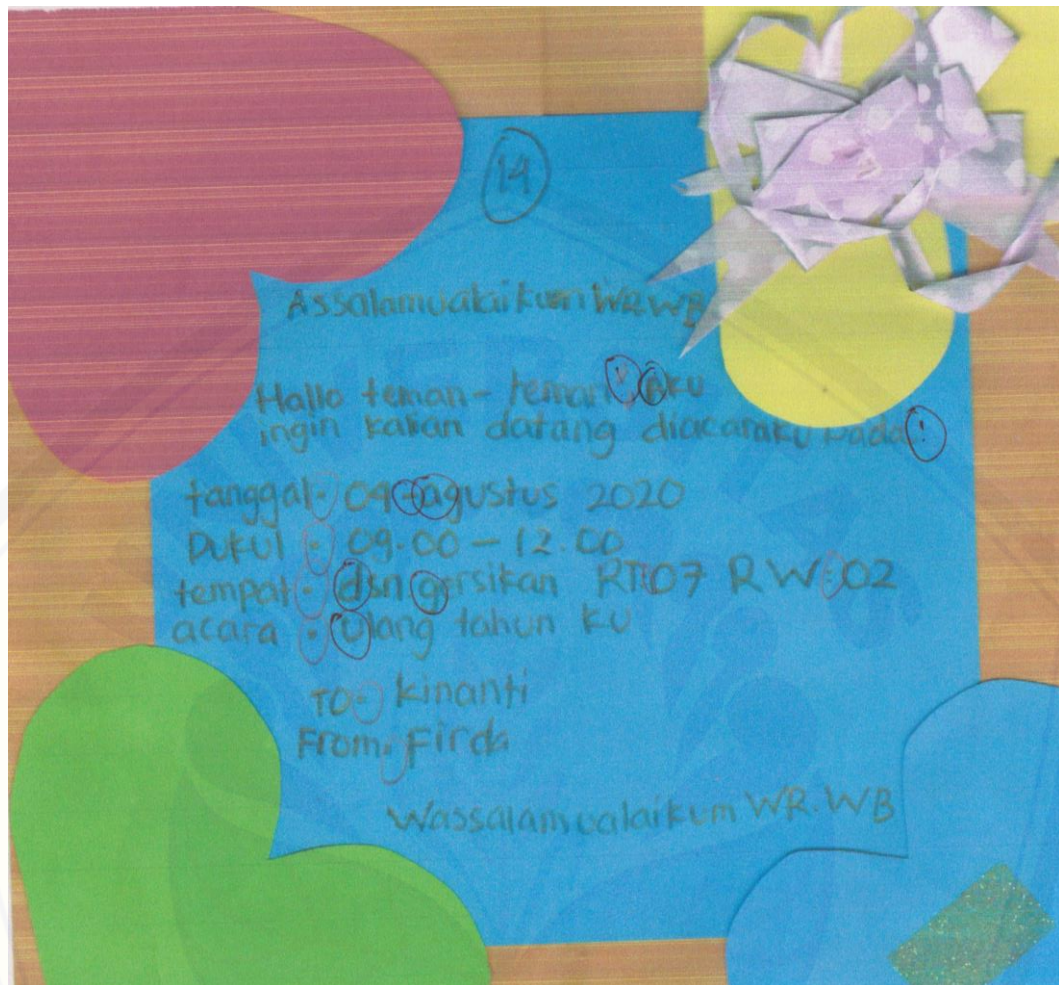 14
Assalamualaikum WR.WB
Hallo teman-teman, Aku
ingin kalian datang diacaraku pada :
tanggal : 04-agustus 2020
Pukul : 09.00 - 12.00
tempat : dsn.gersikan RT:07 RW:02
acara : Ulang tahun ku
TO : kinanti
From : Firda
Wassalamualaikum WR.WB